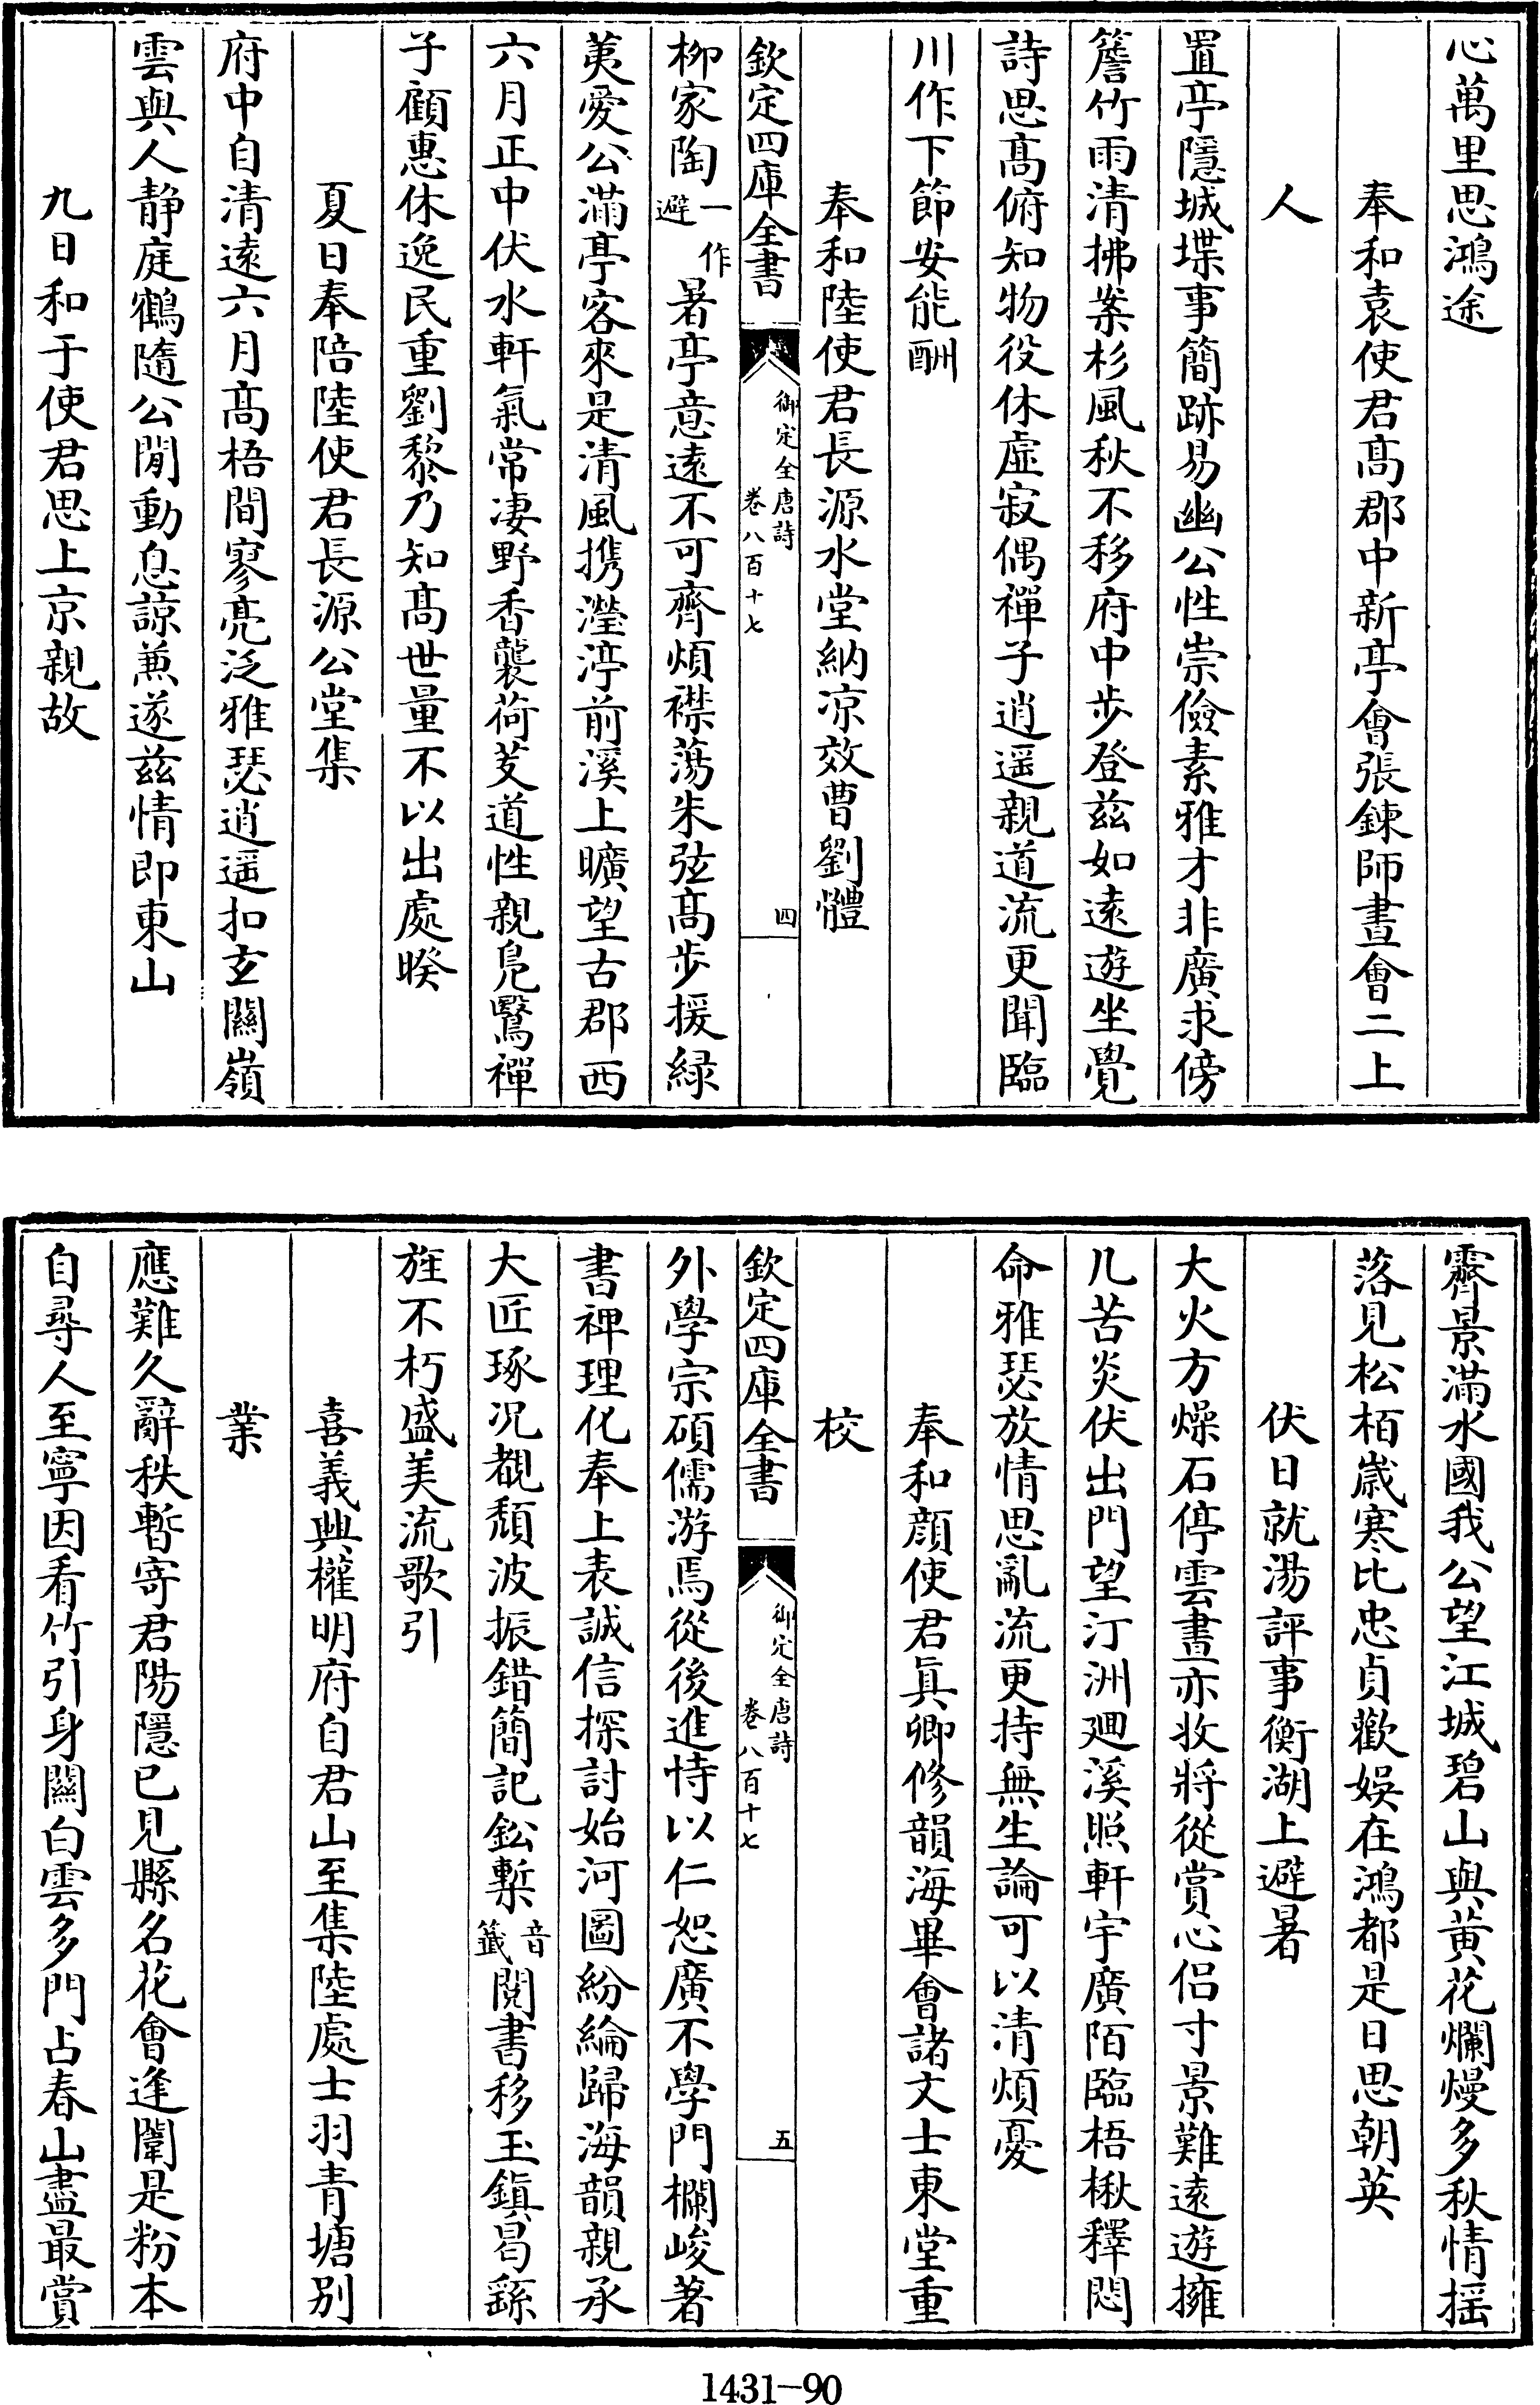 心萬里思鴻途
奉和袁使君髙郡中新亭會張錬師晝會二上
人
置亭隱城堞事簡跡易幽公性崇儉素雅才非廣求傍
簷竹雨清拂案杉風秋不移府中步登兹如遠遊坐覺
詩思髙俯知物役休虛寂偶禪子逍遥親道流更聞臨
川作下節安能酬
奉和陸使君長源水堂納凉效曹劉體
欽定四庫全書
御定全唐詩
卷八百十七
四
柳家陶一作避暑亭意遠不可齊煩襟蕩朱弦髙步援緑
荑愛公滿亭客來是清風携瀅渟前溪上曠望古郡西
六月正中伏水軒氣常凄野香襲荷芰道性親鳬鷖禪
子顧惠休逸民重劉黎乃知髙世量不以出處暌
夏日奉陪陸使君長源公堂集
府中自清遠六月髙梧間寥亮泛雅瑟逍遥扣玄關嶺
雲與人静庭鶴隨公閒動息諒兼遂兹情即東山
九日和于使君思上京親故
霽景滿水國我公望江城碧山與黄花爛熳多秋情揺
落見松栢嵗寒比忠貞歡娛在鴻都是日思朝英
伏日就湯評事衡湖上避暑
大火方燥石停雲晝亦收將從賞心侣寸景難遠遊擁
几苦炎伏出門望汀洲廻溪照軒宇廣陌臨梧楸釋悶
命雅瑟放情思亂流更持無生論可以清煩憂
奉和顔使君真卿修韻海畢會諸文士東堂重
校
欽定四庫全書
御定全唐詩
卷八百十七
五
外學宗碩儒游焉從後進恃以仁恕廣不學門欄峻著
書禆理化奉上表誠信探討始河圖紛綸歸海韻親承
大匠琢况覩頽波振錯簡記鈆槧音籖閲書移玉鎮曷繇
旌不朽盛美流歌引
喜義興權明府自君山至集陸處士羽青塘别
業
應難久辭秩暫寄君陽隱已見縣名花會逢闈是粉本
自尋人至寧因看竹引身關白雲多門占春山盡最賞
1431-90